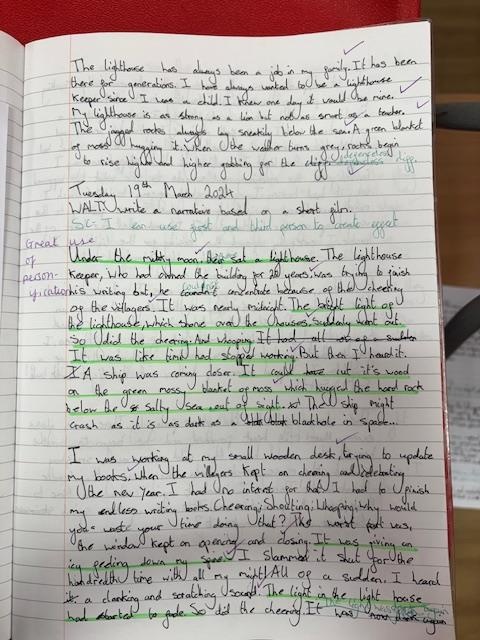 The lighthouse has always been a job in my family. It has been
there for generations. I have always wanted to be a lighthouse
keeper since I was a child. I knew one day it would be mine.
My lighthouse is as strong as a lion but not as smart as a teacher.
The jagged rocks always lay sneakily below the sea. A green blanket
of moss hugging it. When the weather turns grey, rocks begin
to rise higher and higher gobbing for the defenceless cliff.
Tuesday 19th March 2024
WALT: write a narrative based on a short film.
SC: I can use first and third person to create effect
Great use
of
person-
ification
Under the milky moon, there sat a lighthouse. The lighthouse
keeper, who had owned the building for 20 years was trying to finish
his writing but, he couldn't concentrate because of the cheering
of the villagers. It was nearly midnight. The bright light of
the lighthouse, which shone over the houses, suddenly went out.
So did the cheering. And whooping. It had all of a sudden
It was like time had stopped working. But then I heard it.
A ship was coming closer. It could have cut it's wood
on the green mossy blanket of moss which hugged the hard rock
below the salty sea out of sight. The ship might
crash as it is as dark as a blackhole in space...
I was working at my small wooden desk, trying to update
my books, when the villagers kept on cheering and celebrating
the new year. I had no interest for that. I had to finish
my endless writing books. Cheering; Shouting; Whooping; Why would
you waste your time doing that? The worst part was,
the window kept on opening and closing. It was giving an
icy down my spine. I slammed it shut for the
hundredth time with all my might! All of a sudden, I heard
a clanking and scratching sound. The light in the light house
had started to fade. So did the cheering. It was again